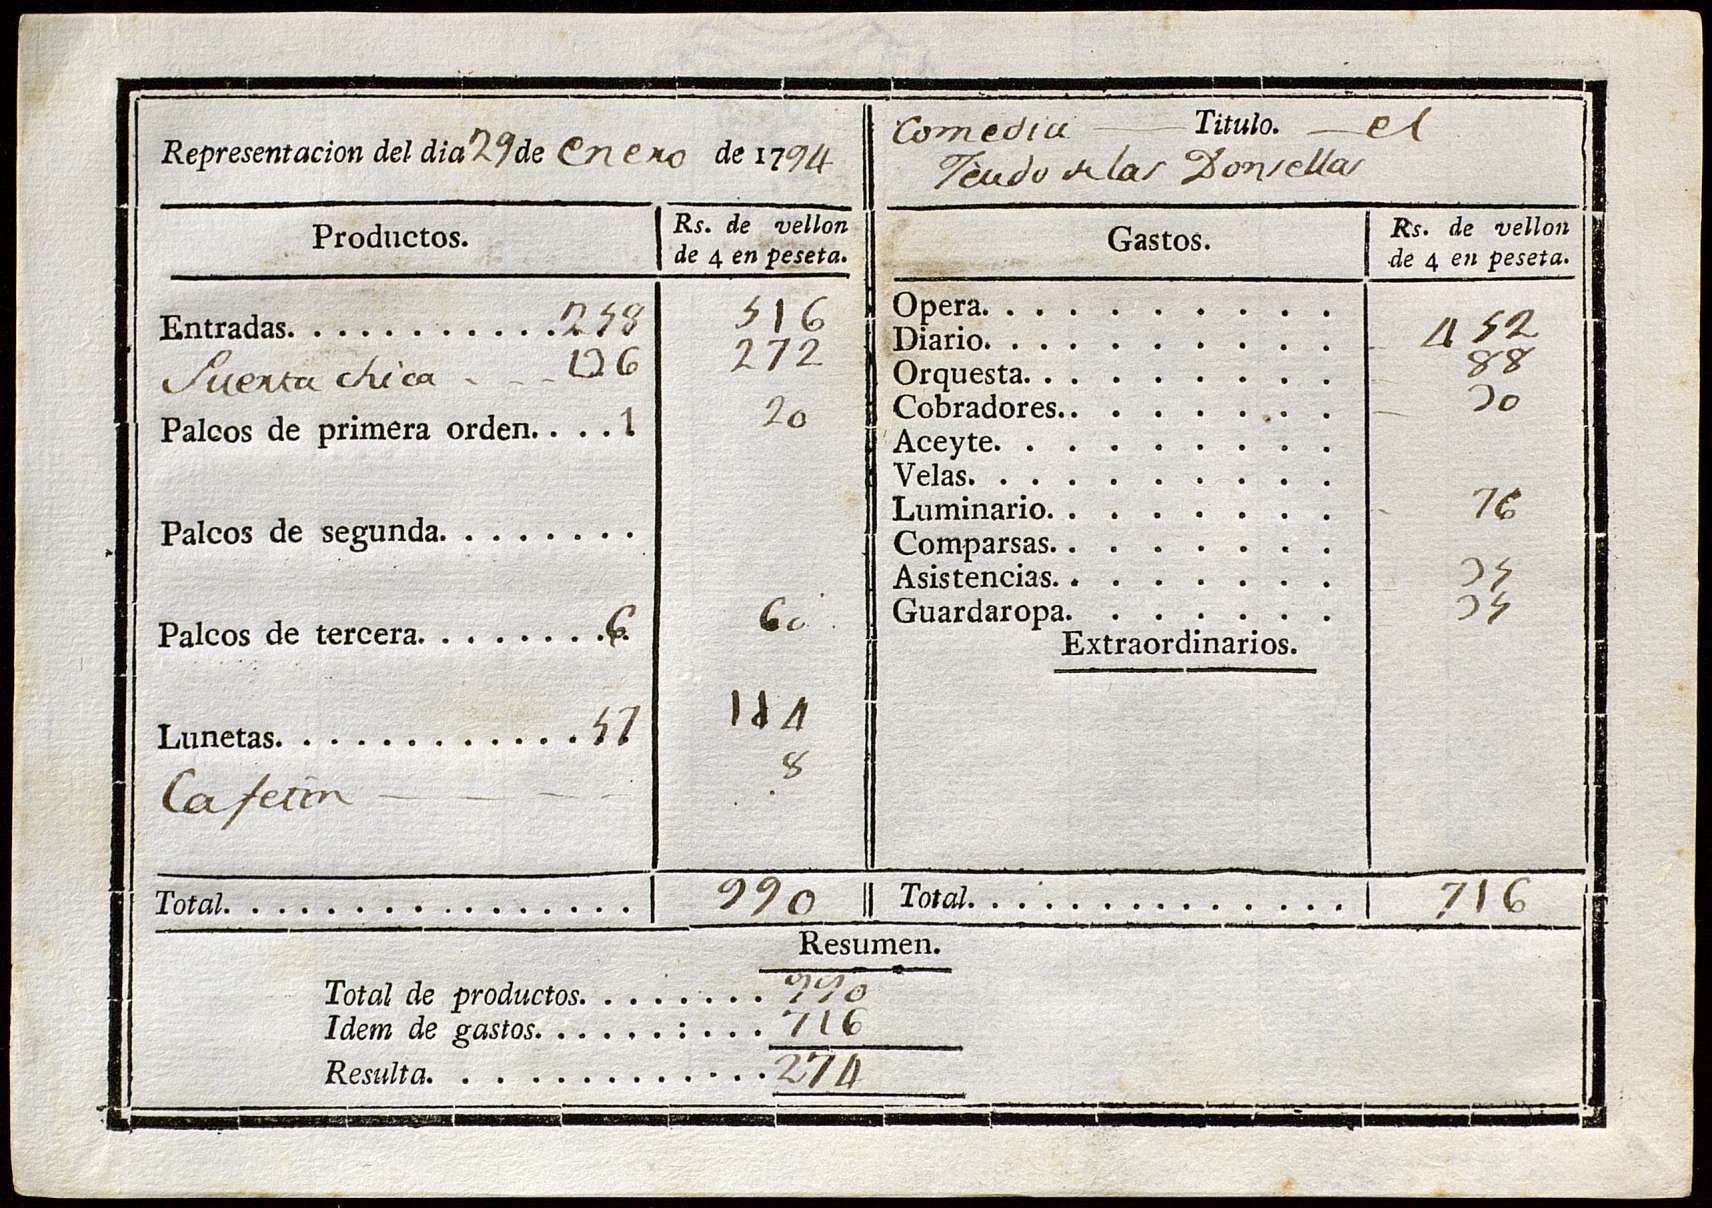 Representacion del dia 29 de Enero de 1794
Comedia — Titulo. — el
Feudo de las Donsellas
Productos.
Rs. de vellon
de 4 en peseta.
Entradas. . . . . . . . . . . . 258 516
Puerta chica - - - 136 272
Palcos de primera orden. . . . . 1 20
Palcos de segunda. . . . . . . .
Palcos de tercera. . . . . . . . 6 60
Lunetas. . . . . . . . . . . . . 57 114
Cafetin — — — — 8
Total. . . . . . . . . . . . . . . . 990
Gastos.
Rs. de vellon
de 4 en peseta.
Opera. . . . . . . . . .
Diario. . . . . . . . . . 452
Orquesta. . . . . . . . . 88
Cobradores. . . . . . . . 30
Aceyte. . . . . . . . .
Velas. . . . . . . . . .
Luminario. . . . . . . . 76
Comparsas. . . . . . . .
Asistencias. . . . . . . . 35
Guardaropa. . . . . . . 35
Extraordinarios.
Total. . . . . . . . . . . . . . . 716
Resumen.
Total de productos. . . . . . . . 990
Idem de gastos. . . . . . : . . . 716
Resulta. . . . . . . . . . . . 274